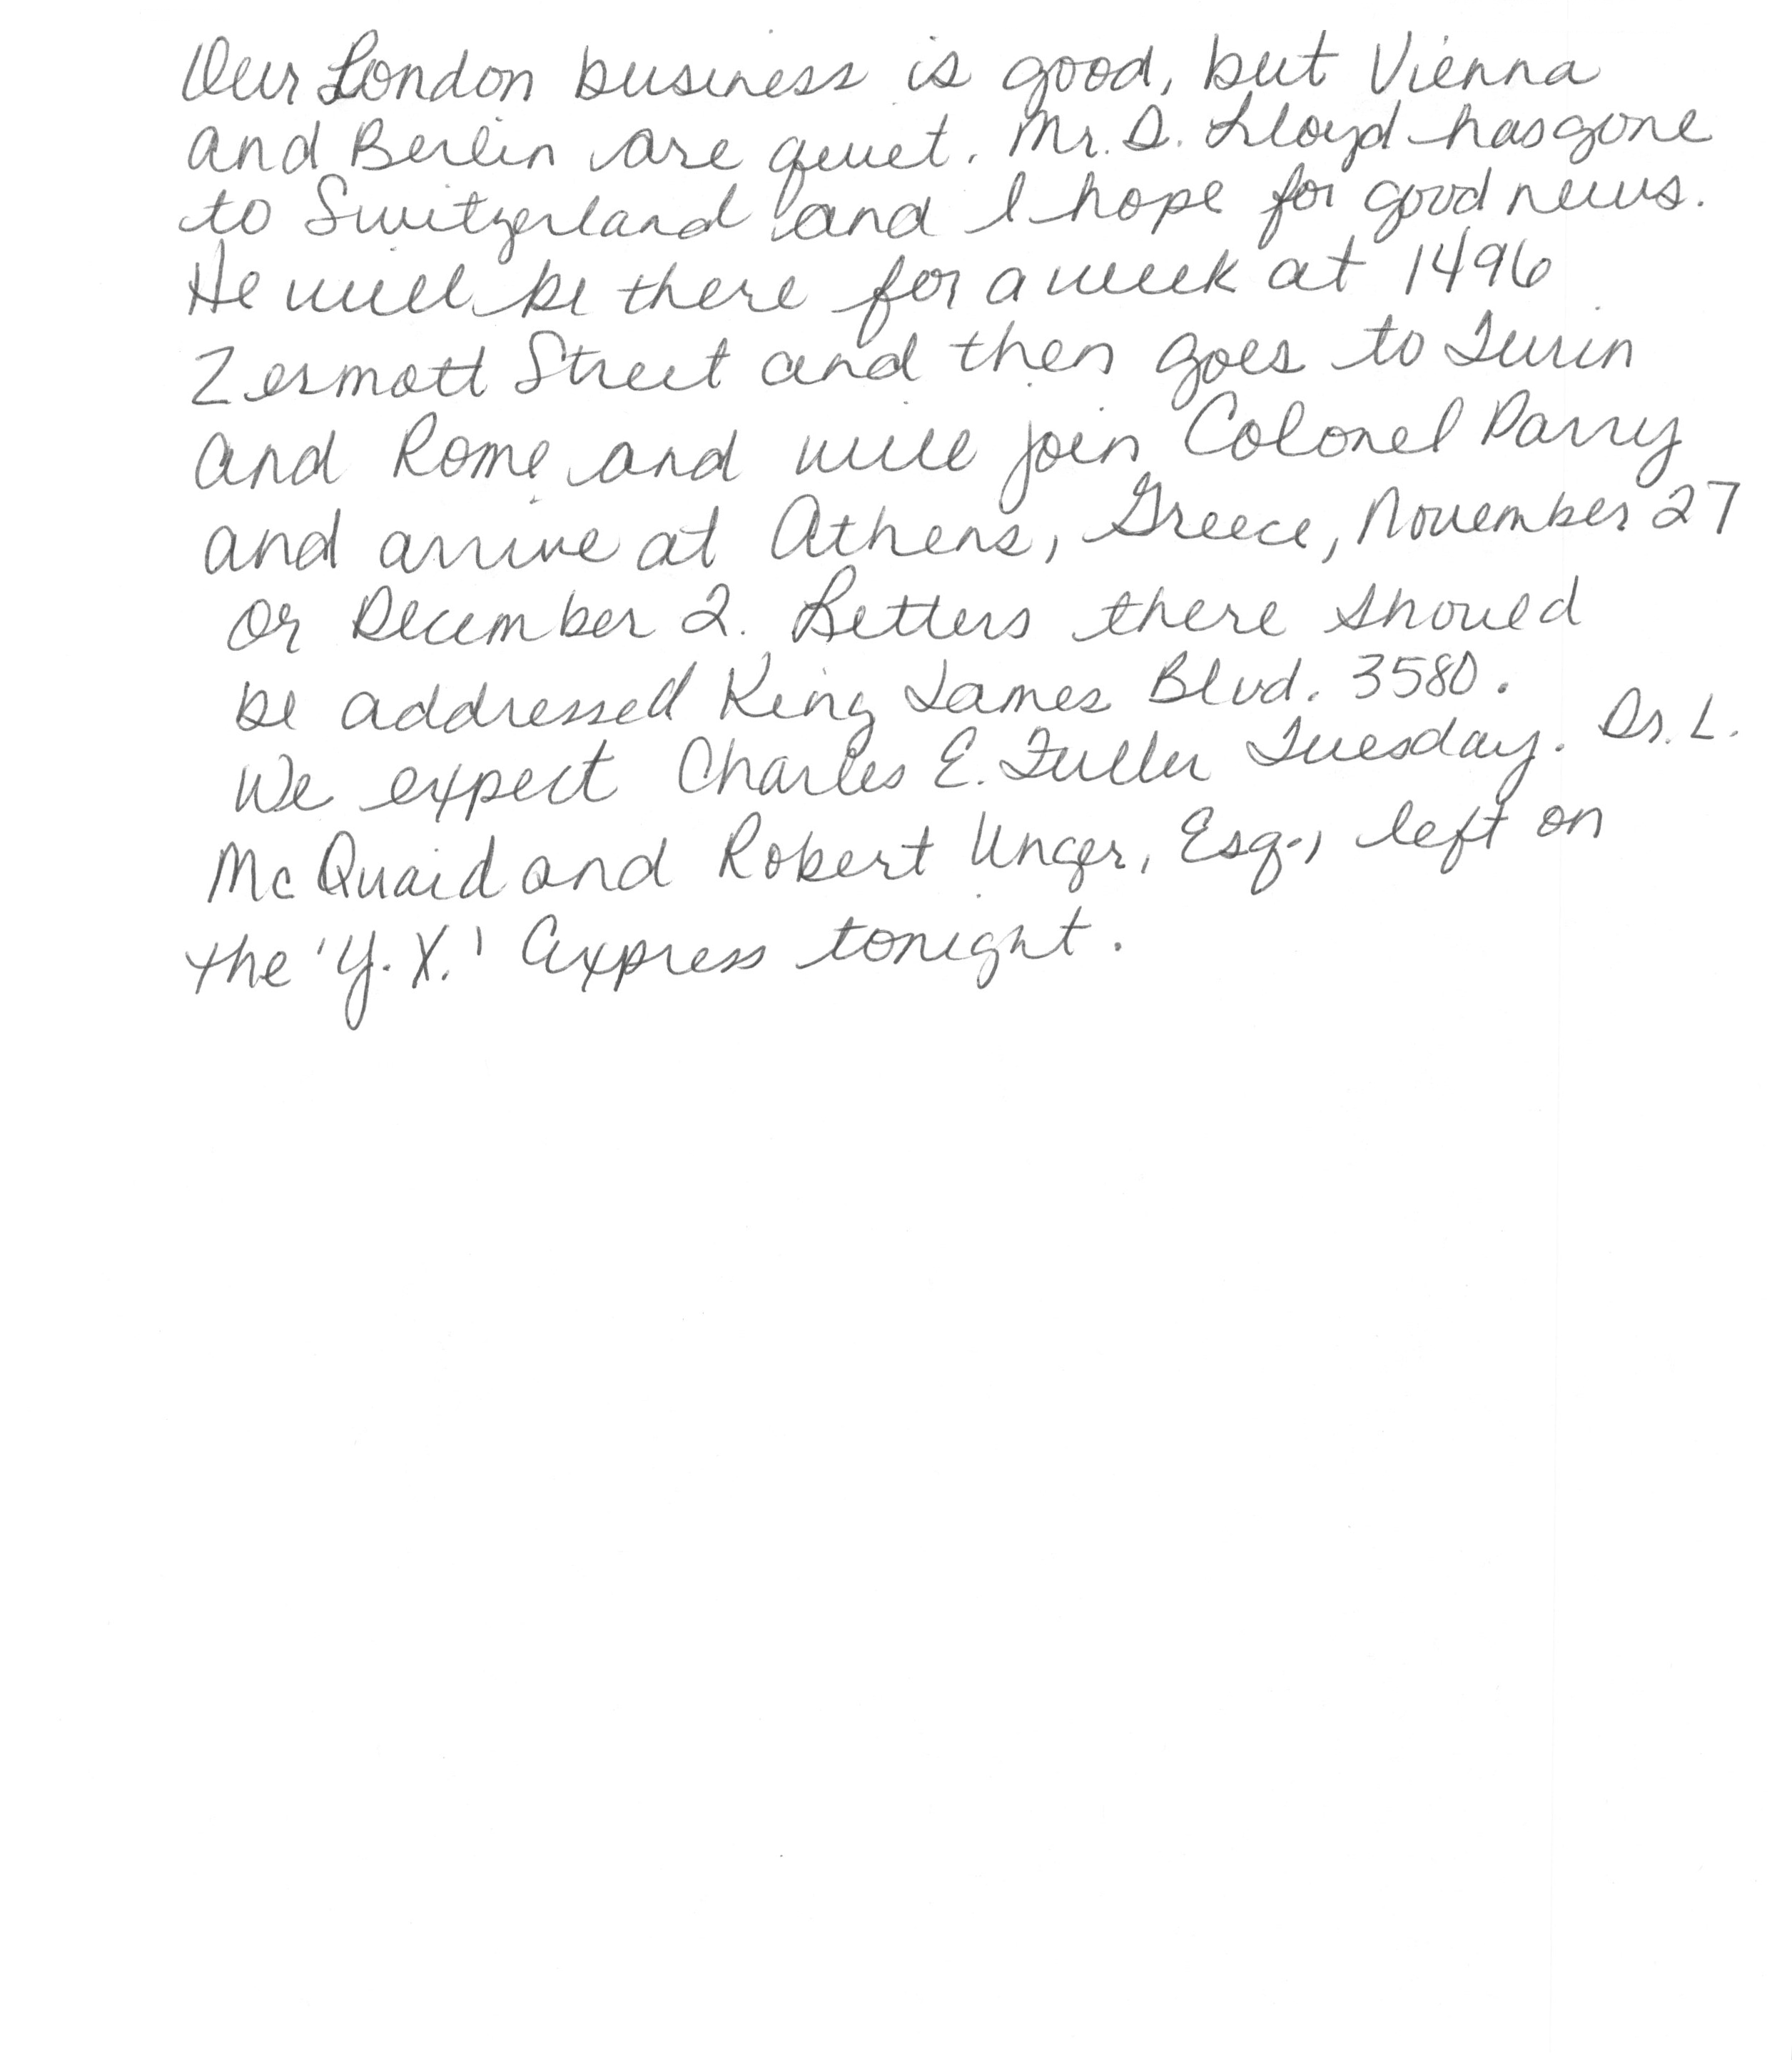 Our London business is good, but Vienna
and Berlin are quiet. Mr. D. Lloyd has gone
to Switzerland and I hope for good news.
He will be there for a week at 1496
Zermott Street and then goes to Turin
and Rome and will join Colonel Parry
and arrive at Athens, Greece, November 27
or December 2. Letters there should
be addressed King James Blvd. 3580.
We expect Charles E. Fuller Tuesday. Dr. L.
McQuaid and Robert Unger, Esq., left on
the 'Y.X.' Express tonight.